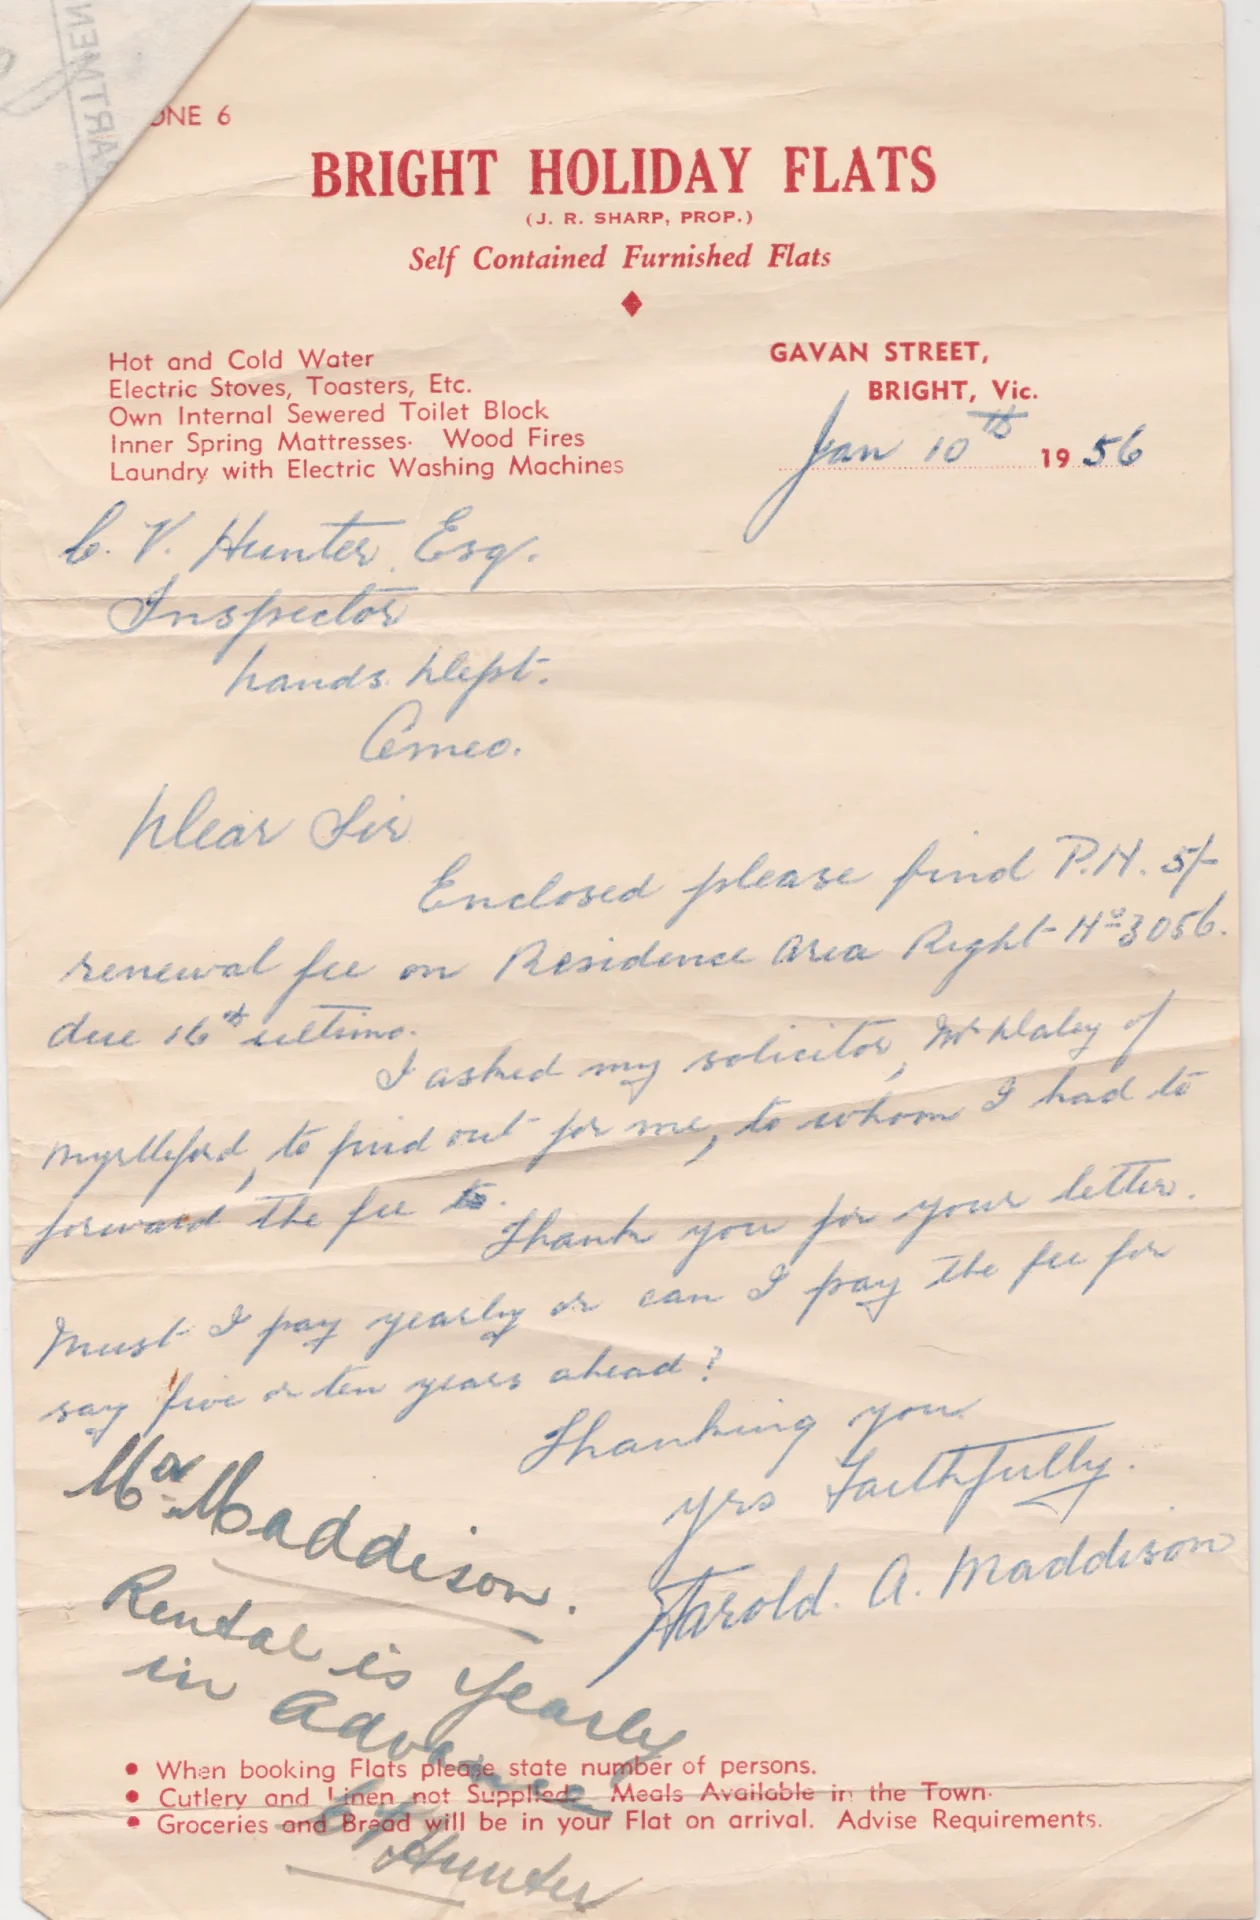 ARTMEN
ONE 6
BRIGHT HOLIDAY FLATS
(J. R. SHARP, PROP.)
Self Contained Furnished Flats
Hot and Cold Water
Electric Stoves, Toasters, Etc.
Own Internal Sewered Toilet Block
Inner Spring Mattresses. Wood Fires
Laundry with Electric Washing Machines
GAVAN STREET,
BRIGHT, Vic.
Jan 10th 1956
C. V. Hunter, Esq.
Inspector
Lands Dept.
Omeo.
Dear Sir
Enclosed please find P.N. 5/-
renewal fee on Residence Area Right No 3056.
due 16th ultimo.
I asked my solicitor, Mr Daley of
Myrtleford, to find out for me, to whom I had to
forward the fee to.
Thank you for your letter.
Must I pay yearly or can I pay the fee for
say five or ten years ahead?
Thanking you.
yrs Faithfully.
Harold. A. Maddison
Mr Maddison.
Rental is yearly
in Advance
Hunter
• When booking Flats please state number of persons.
• Cutlery and Linen not Supplied. Meals Available in the Town.
• Groceries and Bread will be in your Flat on arrival. Advise Requirements.